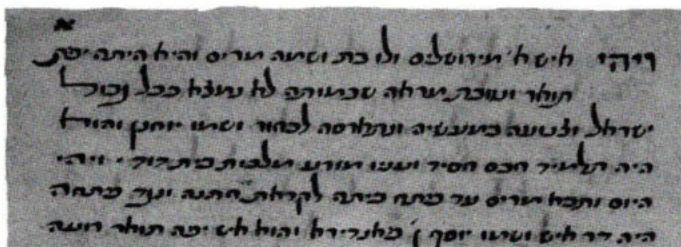 א
ויהי איש א' מירושלים ולו בת ושמה מרים והיא היתה יפת
תואר וטובת מראה שכמותה לא נמצא בכל גבול
ישראל וצנועה במעשיה ונתארסה לבחור ושמו יוחנן והוא
היה תלמיד חכם חסיד ועניו מזרע מלכות בית דוד . ויהי
היום ותבא מרים עד פתח ביתה לקראת חתנה ונגד פתחה
היה דר איש ושמו יוסף ן' פאנדירא והוא איש יפה תואר רועה